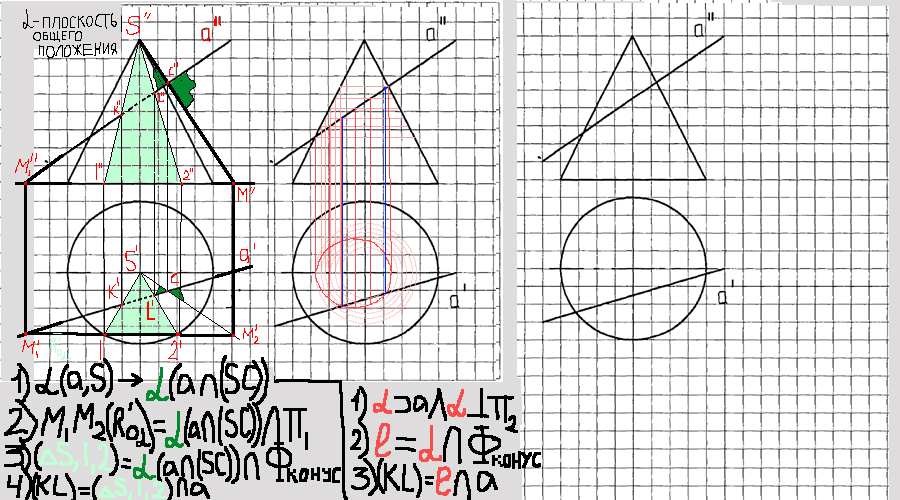 α-ПЛОСКОСТЬ
ОБЩЕГО
ПОЛОЖЕНИЯ
S"
a"
C"
K"
L"
M₁"
1"
2"
M"
S'
a'
K'
L'
C'
M₁'
1'
2'
M₂'
1) α(a,S) → α(a∩(SC))
2) M₁M₂(R'₀α) = α(a∩(SC))∩П₁
3) (△S,1,2) = α(a∩(SC))∩Φконус
4) (KL)=(△S,1,2)∩a
a"
a'
1) α⊃a∧α⊥П₂
2) ℓ=α∩Φконус
3) (KL)=ℓ∩a
a"
a'